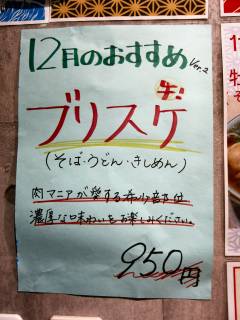 12月のおすすめ Ver.2
牛
ブリスケ
(そば・うどん・きしめん)
肉マニアが愛する希少部位
濃厚な味わいをお楽しみください。
950円